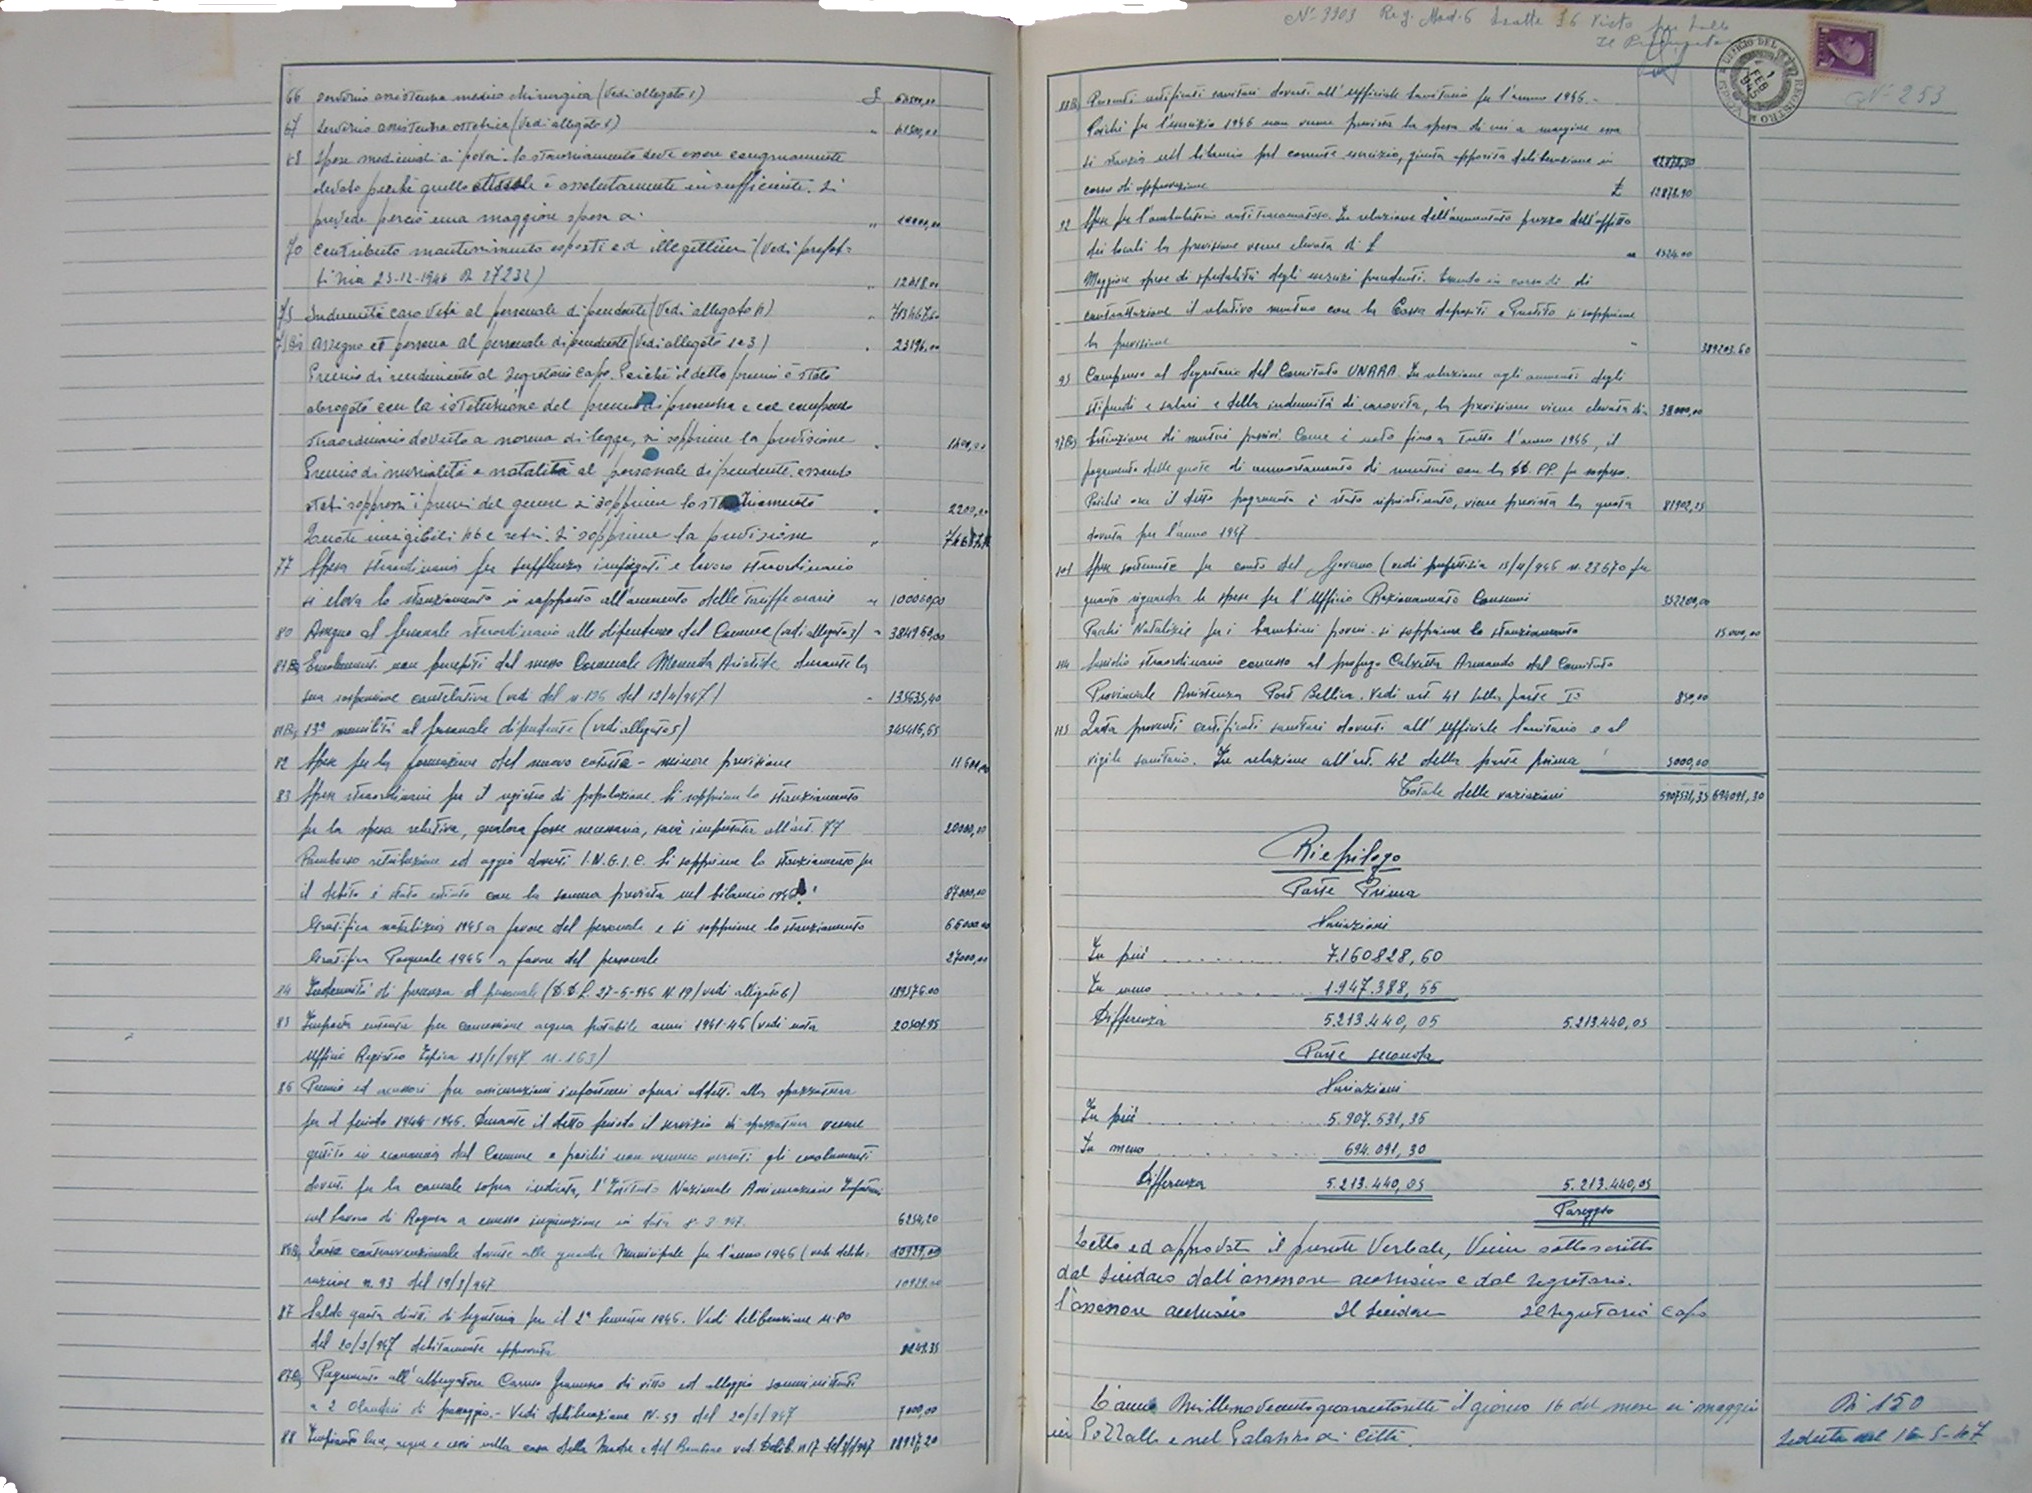 66 Servizio assistenza medico chirurgica (Vedi allegato 1) £
67 Servizio assistenza ostetrica (Vedi allegato 1) "
68 Spese medicinali ai poveri. Lo stanziamento deve essere congruamente
elevato perché quello attuale è assolutamente insufficiente. Si
prevede perciò una maggiore spesa di "
70 Contributo mantenimento esposti ed illegittimi (Vedi prefet-
tizia 23-12-1946 N 27232) " 12018.00
75 Indennità caro vita al personale dipendente (Vedi allegato)
Assegno di persona al personale dipendente (Vedi allegato 1 e 3) 23196,00
Premio di rendimento al Segretario Capo. Poiché il detto premio è stato
abrogato con la istituzione del premio di presenza e col compenso
straordinario dovuto a norma di legge, si sopprime la previsione "
Premio di nuzialità e natalità al personale dipendente, essendo
stati soppressi i premi del genere si sopprime lo stanziamento " 2200,00
Quote inesigibili si sopprime la previsione "
77 Spesa straordinaria per supplenza impiegati e lavoro straordinario
si eleva lo stanziamento in rapporto all'aumento delle tariffe orarie " 100000,00
80 Assegno al personale straordinario alle dipendenze del Comune (vedi allegato 3) " 384960,00
81 Bis Emolumenti non percepiti dal messo Comunale Aristide durante la
sua sospensione cautelativa (vedi del n. 126 del 12/4/947) " 135635,40
81 Bis 13ª mensilità al personale dipendente (vedi allegato 5) 345416,65
82 Spese per la formazione del nuovo catasto - minore previsione
83 Spese straordinarie per il registro di popolazione. Si sopprime lo stanziamento
per la spesa relativa, qualora fosse necessaria, sarà imputata all'art. 77 20000,00
Rimborso retribuzione ed aggio dovuti I.N.G.I.C. Si sopprime lo stanziamento per
il debito è stato estinto con la somma prevista nel bilancio 1946
Gratifica natalizia 1945 a favore del personale e si sopprime lo stanziamento 66000.00
Gratifica Pasquale 1946 a favore del personale 27000,00
84 Indennità di presenza al personale (D.D.L. 27-6-946 N. 19) vedi allegato 6) 189576.00
85 Imposta entrata per concessione acqua potabile anni 1941-45 (vedi nota 20501.95
Ufficio Registro Ispica 13/1/947 n. 163)
86 Premio ed accessori per assicurazioni infortuni operai addetti alla spazzatura
per il periodo 1944-1946. Durante il detto periodo il servizio di spazzatura venne
gestito in economia dal Comune e poiché non vennero versati gli emolumenti
dovuti per la causale sopra indicata, l'Istituto Nazionale Assicurazione Infortuni
sul lavoro di Ragusa a emesso ingiunzione in data 8-3-947. 6254,20
86 Bis Quota contravvenzionale dovute alle guardie Municipale per l'anno 1946 (vedi delibe- 10929,00
razione n. 93 del 19/3/947 10929.00
87 Saldo quota diritti di segreteria per il 2° Semestre 1946. Vedi deliberazione N. 80
del 20/3/947 debitamente approvata
87 Bis Pagamento all'albergatore Caruso Francesco di vitto ed alloggio somministrati
a 2 Olandesi di passaggio. - Vedi deliberazione N. 59 del 20/2/947 7000,00
88 Impianto luce, acqua e cessi nella casa della Madre e del Bambino ved. Delib. n 17 del 947
N° 3303 Reg. Mod. 6 Visto per bollo
UFFICIO DEL REGISTRO
1 FEB 945
N° 253
Proventi certificati sanitari dovuti all'Ufficiale Sanitario per l'anno 1946.
Poiché per l'esercizio 1946 non venne prevista la spesa di cui a margine essa
si stanzia nel bilancio pel corrente esercizio, giusta apposita deliberazione in
corso di approvazione £ 12878.90
92 Spese per l'ambulatorio antitracomatoso. In relazione dell'aumentato prezzo dell'affitto
dei locali la previsione viene elevata di £ " 1524.00
Maggiore spese di spedalità degli esercizi precedenti. Essendo in corso di di
contrattazione il relativo mutuo con la Cassa depositi e Prestito si sopprime
la previsione " 389203.60
95 Compenso al Segretario del Comitato UNRRA. In relazione agli aumenti degli
stipendi e salari e della indennità di carovita, la previsione viene elevata di 38000,00
Estinzione di mutui passivi. Come è noto fino a tutto l'anno 1946, il
pagamento delle quote di ammortamento di mutui con la DD. PP. fu sospeso.
Poiché ora il detto pagamento è stato ripristinato, viene prevista la quota 81902,25
dovuta per l'anno 1947
101 Spese sostenute per conto del Governo (vedi prefettizia 13/4/946 n. 23670 per
quanto riguarda le spese per l'Ufficio Razionamento Consumi 352200,00
Pacchi Natalizie per i bambini poveri - si sopprime lo stanziamento 15.000,00
114 Sussidio straordinario concesso al profugo Calzetta Armando dal Comitato
Provinciale Assistenza Post Bellica. Vedi art. 41 della parte Iª 850,00
115 Quota proventi certificati sanitari dovuti all'Ufficiale Sanitario e al
vigile sanitario. In relazione all'art. 42 della parte prima 3000,00
Totale delle variazioni 5907531,35 694091,30
Riepilogo
Parte Prima
Variazioni
In più 7.160828,60
In meno 1.947.388,55
Differenza 5.213.440,05 5.213.440,05
Parte seconda
Variazioni
In più 5.907.531,35
In meno 694.091,30
Differenza 5.213.440,05 5.213.440,05
Pareggio
Letto ed approvato il presente Verbale, Viene sottoscritto
dal Sindaco dall'assessore anziano e dal Segretario.
L'assessore anziano Il Sindaco Il Segretario Capo
L'anno Millenovecentoquarantasette il giorno 16 del mese di maggio
in Pozzallo e nel Palazzo di Città.
N 150
Seduta del 16-5-47